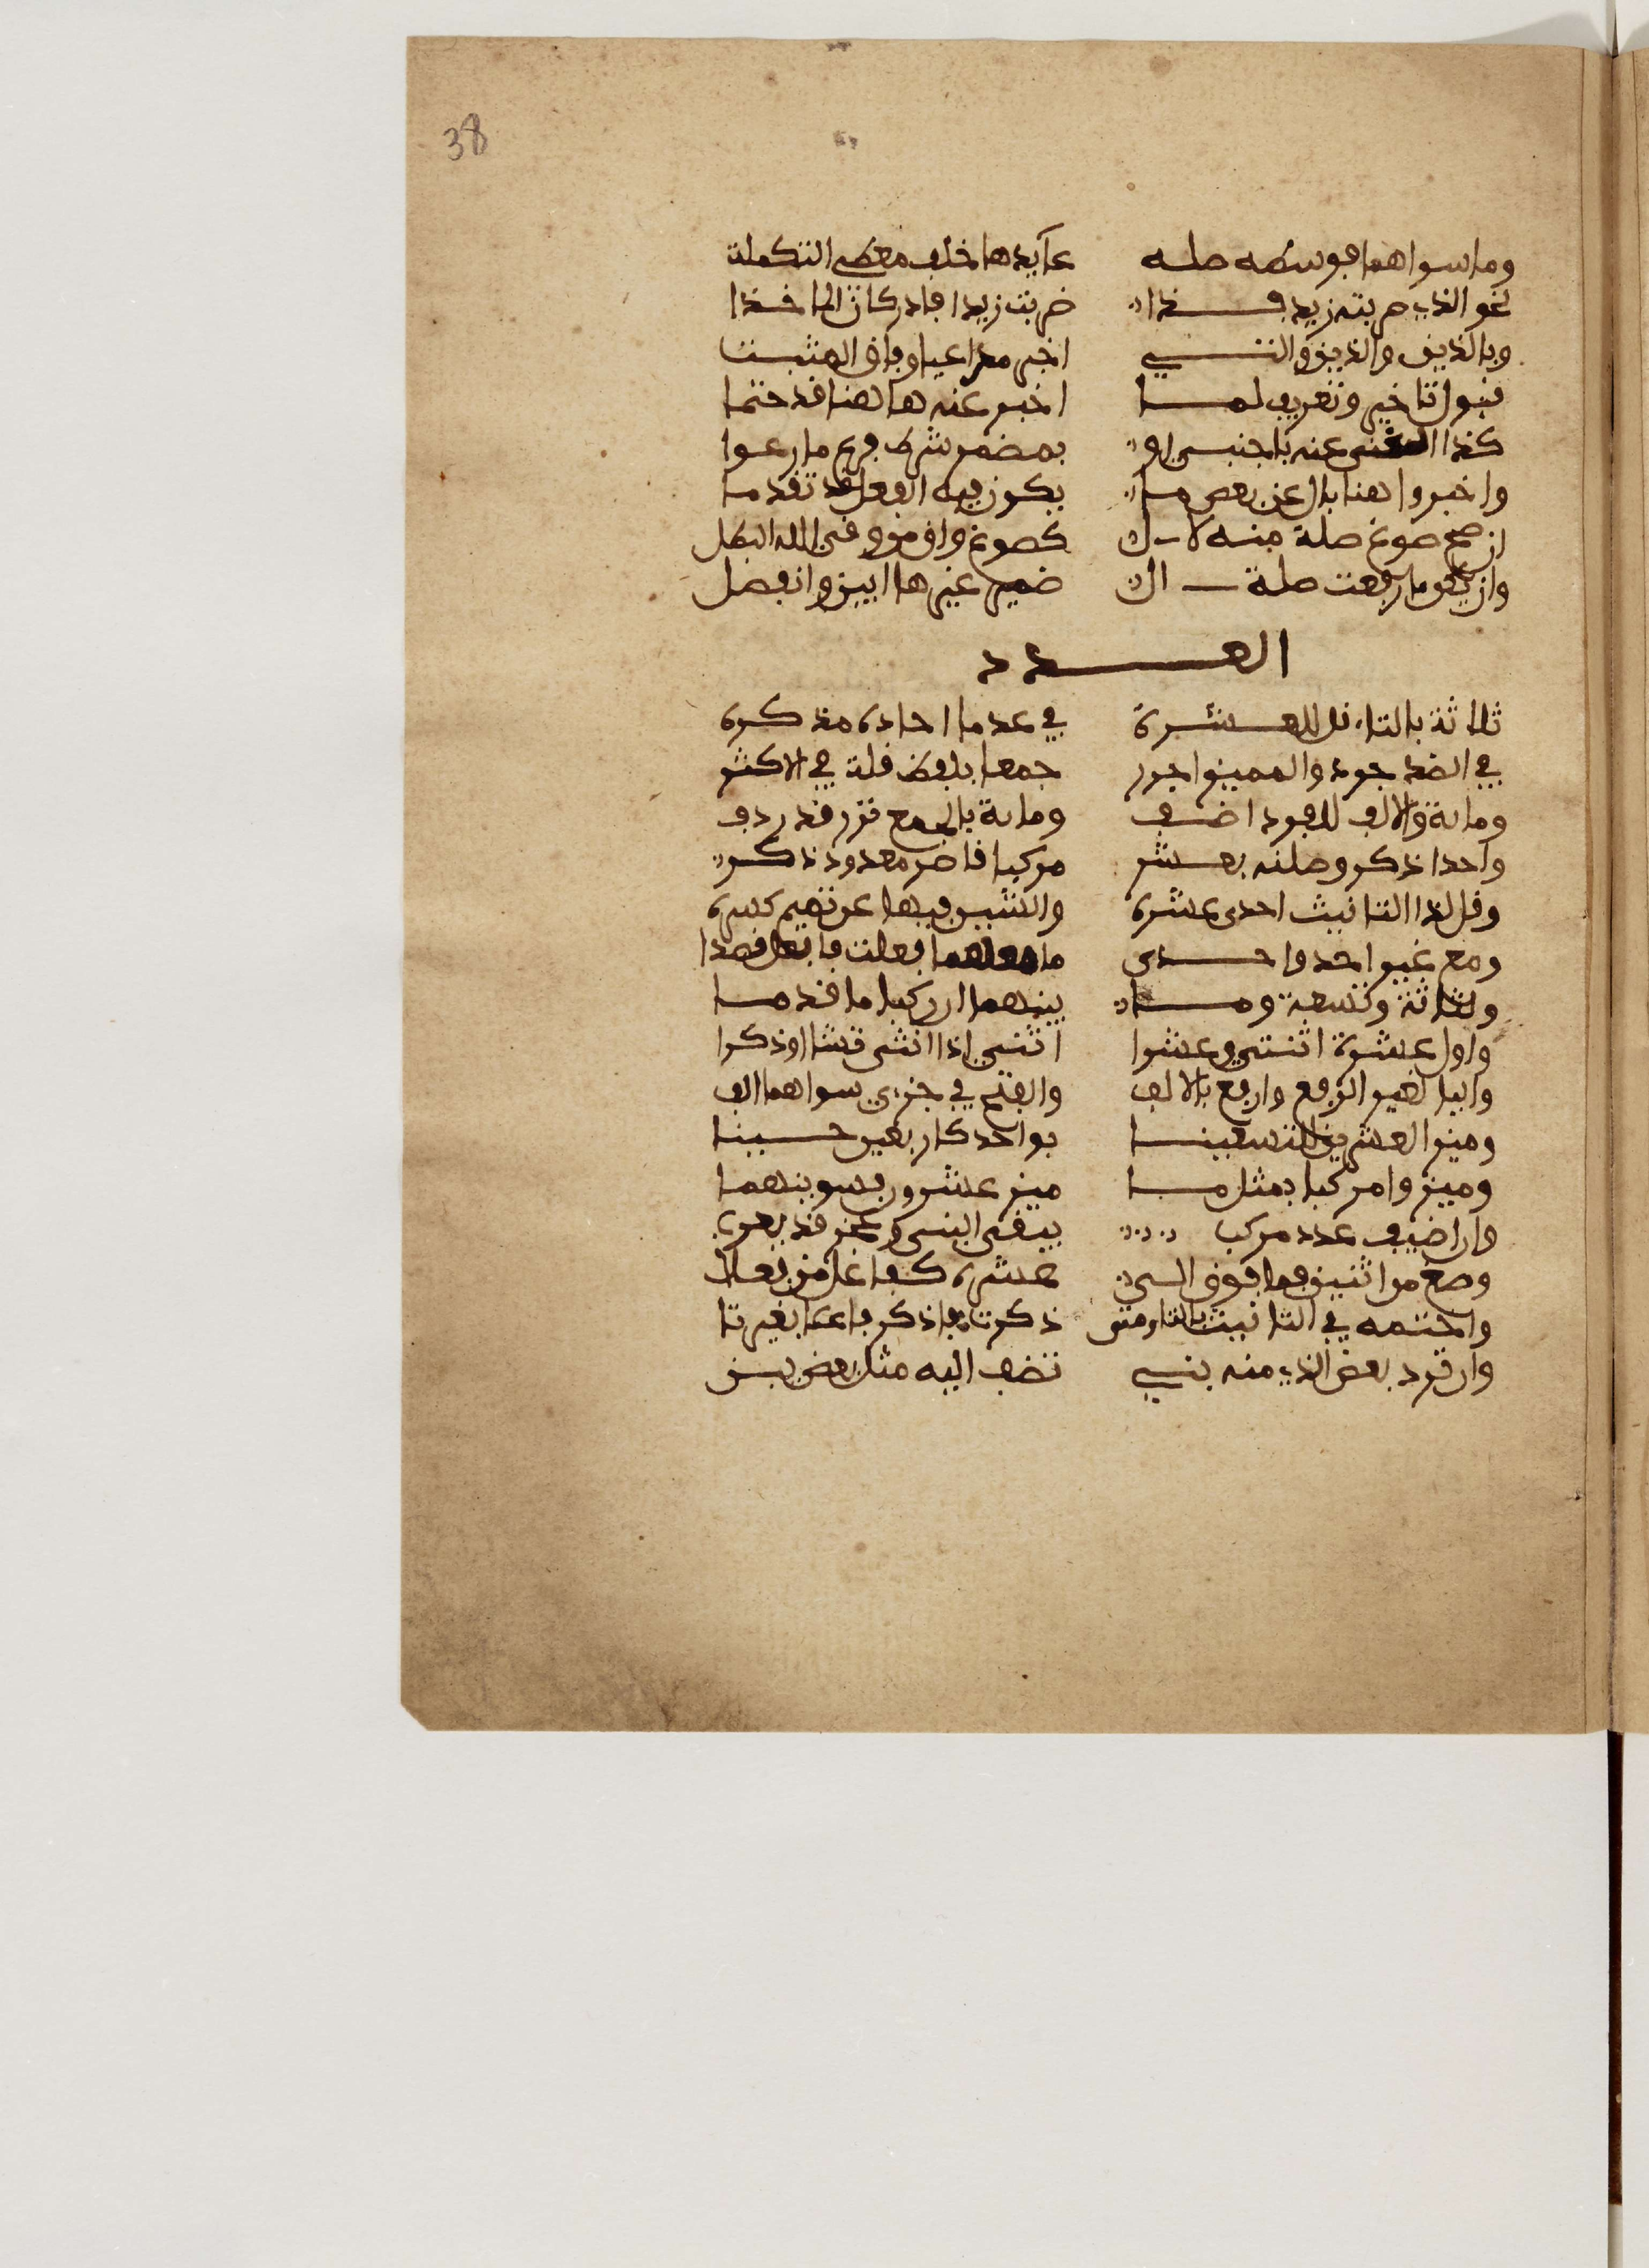 38
وما سواهما فوسطه صله عايدها خلف معطي التكملة
نحو الذي ضربته زيد فذا ضربت زيدا كان فادر الماخذا
وباللذين والذين والتي اخبر مراعيا وفاق المثبت
قبول تاخير وتعريف لما اخبر عنه هاهنا قد حتما
كذا الغنى عنه باجنبي او بمضمر شرط فراع ما رعوا
واخبروا هنا بال عن بعض ما يكون فيه الفعل قد تقدما
ان صح صوغ صلة منه لال كصوغ واق من وقى الله البطل
وان يكن ما رفعت صلة ال ضمير غيرها ابين وانفصل
العدد
ثلاثة بالتاء قل للعشرة في عد ما احاده مذكره
في الضد جرد والمميز اجرر جمعا بلفظ قلة في الاكثر
وماية والالف للفرد اضف وماية بالجمع نزرا قد ردف
واحد اذكر وصلنه بعشر مركبا قاصد معدود ذكر
وقل لذا التانيث احدى عشرة والشين فيها عن تميم كسره
ومع غير احد واحدى ما معهما فعلت فافعل قصدا
ولثلاثة وتسعة وما بينهما ان ركبا ما قدما
واول عشرة اثنتي وعشرا اثني اذا انثى تشا او ذكرا
واليا لغير الرفع وارفع بالالف والفتح في جزءي سواهما الف
وميز العشرين للتسعينا بواحد كاربعين حينا
وميزوا مركبا بمثل ما ميز عشرون فسوينهما
وان اضيف عدد مركب يبقى البنى وعجز قد يعرب
وصغ من اثنين فما فوق الى عشرة كفاعل من فعلا
واختمه في التانيث بالتا ومتى ذكرت فاذكر فاعلا بغير تا
وان ترد بعض الذي منه بني تضف اليه مثل بعض بين